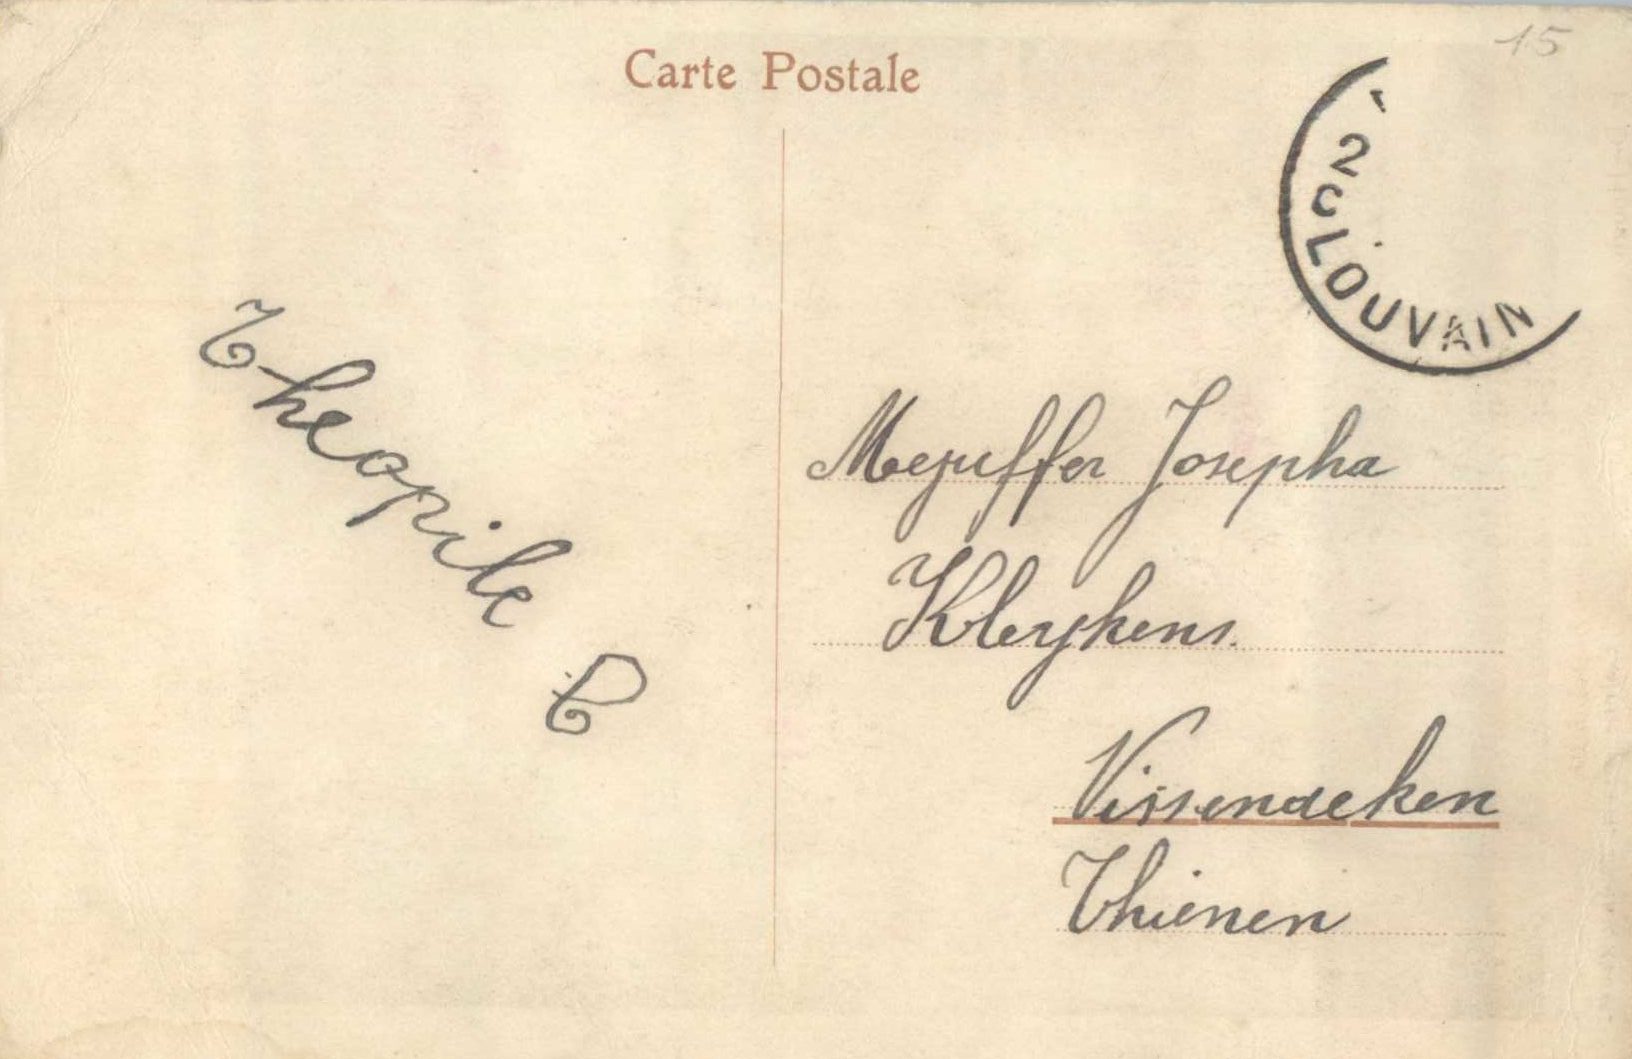 Carte Postale
15
2C LOUVAIN
Theopile
Mejuffer Josepha
Kleykens.
Vissenaeken
Thienen